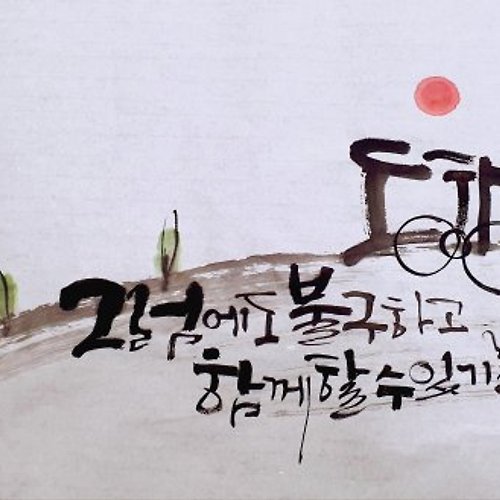 동
그럼에도 불구하고
함께할 수 있기